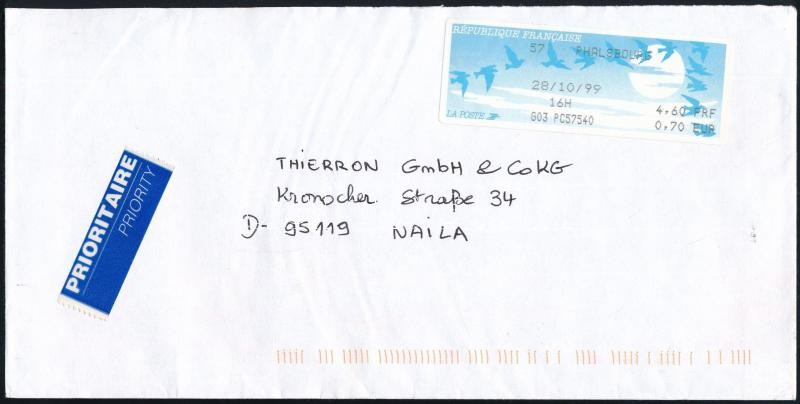 RÉPUBLIQUE FRANÇAISE
57 PHALSBOURG
28/10/99
16H
4,60 FRF
LA POSTE
G03 PC57540
0,70 EUR
THIERRON GmbH & CoKG
Kronocher Straße 34
D- 95119 NAILA
PRIORITAIRE
PRIORITY